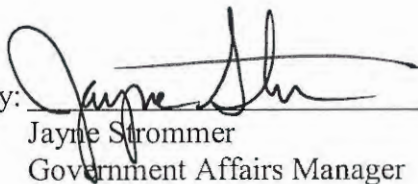 y: Jayne Str
Jayne Strommer
Government Affairs Manager